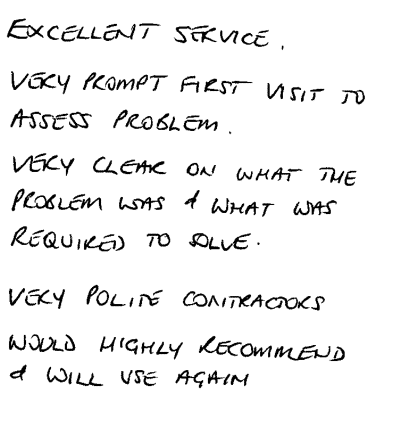 EXCELLENT SERVICE.
VERY PROMPT FIRST VISIT TO
ASSESS PROBLEM.
VERY CLEAR ON WHAT THE
PROBLEM WAS & WHAT WAS
REQUIRED TO SOLVE.
VERY POLITE CONTRACTORS
WOULD HIGHLY RECOMMEND
& WILL USE AGAIN